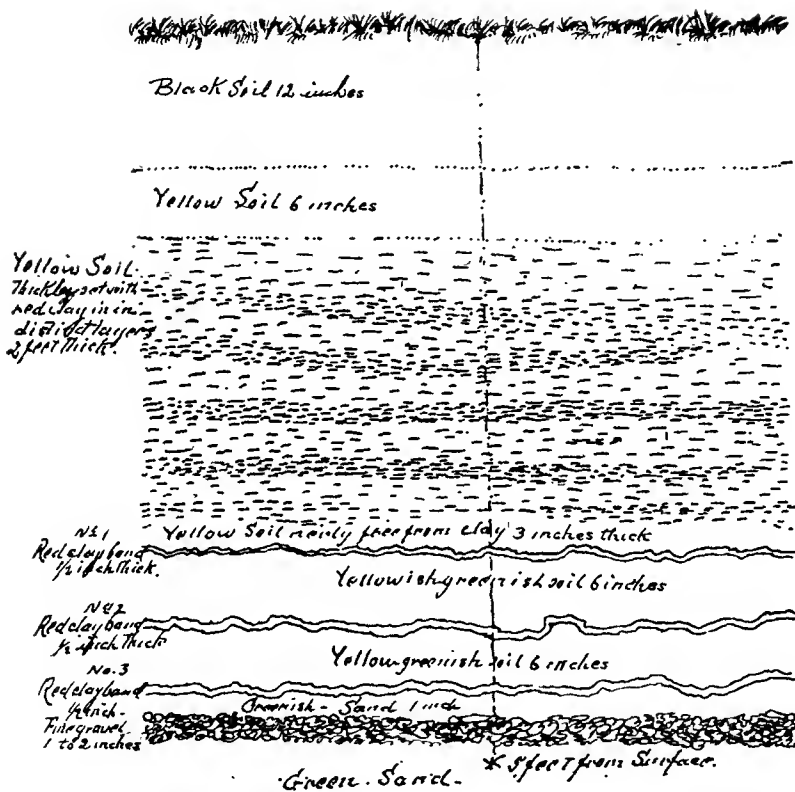 Black Soil 12 inches
Yellow Soil 6 inches
Yellow Soil.
Thickly set with
red clay in in
distinct layers
2 feet thick.
Yellow Soil nearly free from clay 3 inches thick
No. 1
Red clay band
1/2 inch thick.
Yellowish greenish soil 6 inches
No 2
Red clay band
1/2 inch thick
Yellow greenish soil 6 inches
No. 3
Red clay band
1/2 inch -
Greenish - Sand 1 inch
Fine gravel
1 to 2 inches
* 5 feet from Surface.
Green. Sand -